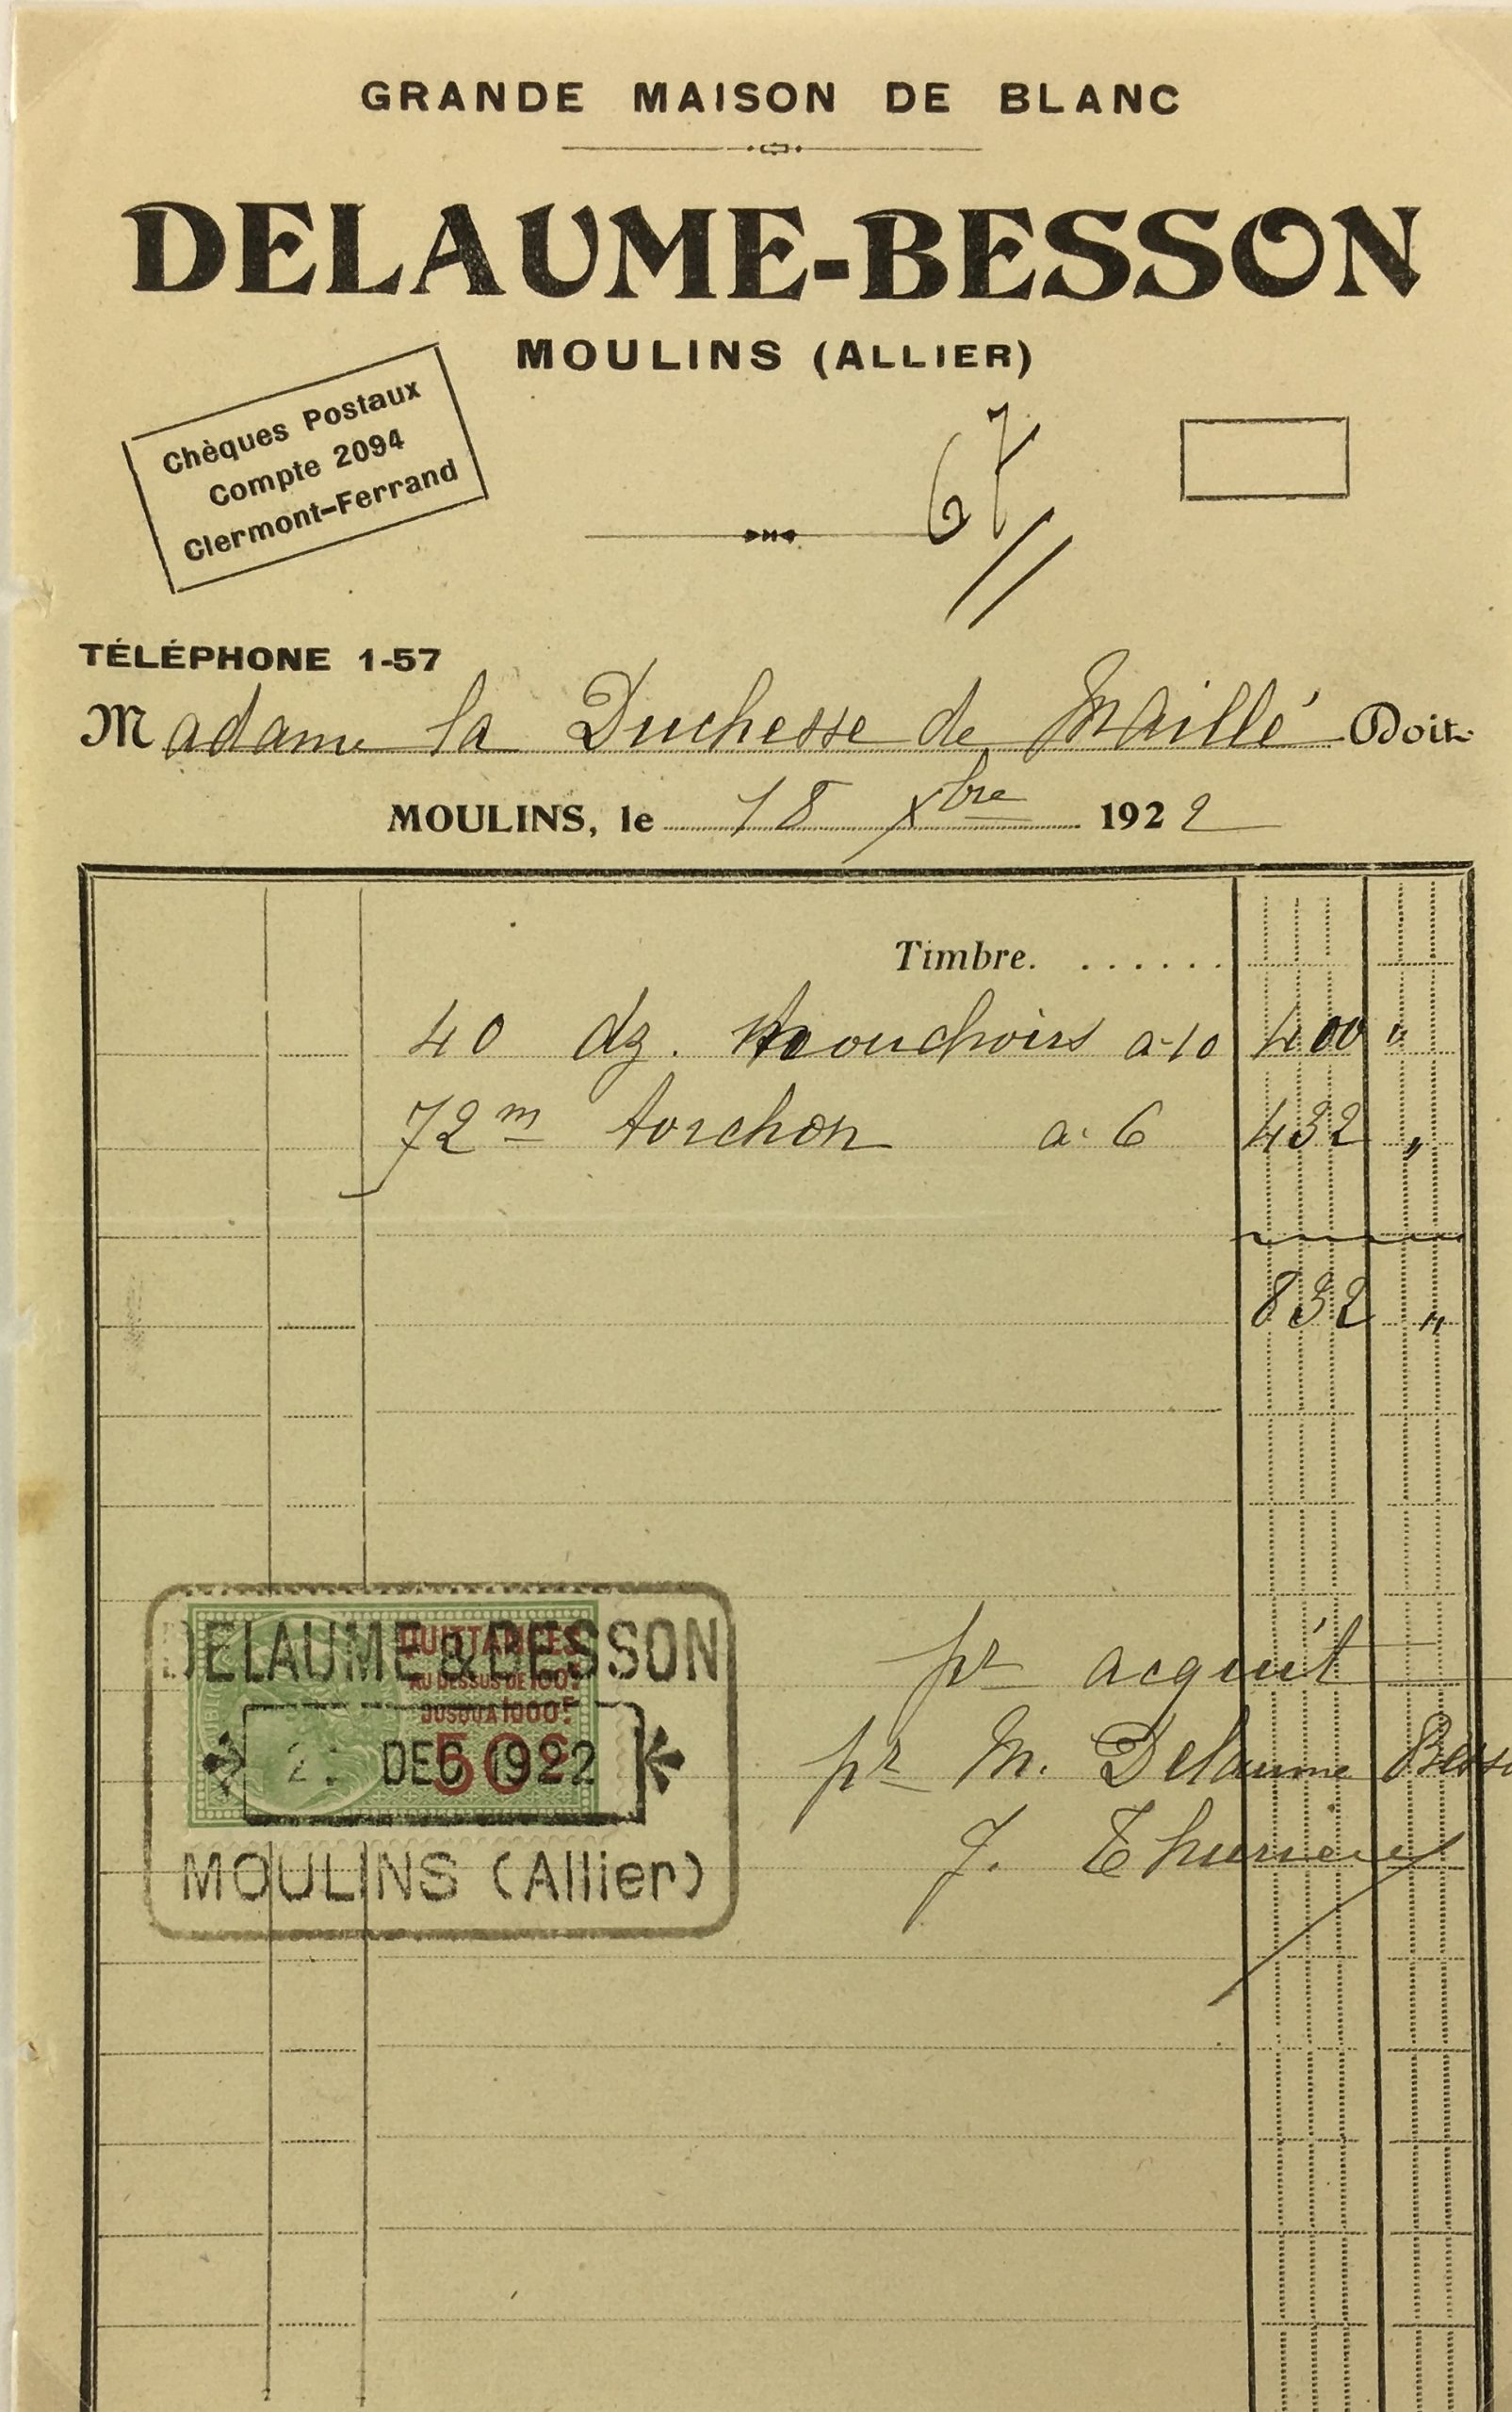 GRANDE MAISON DE BLANC
DELAUME-BESSON
MOULINS (ALLIER)
Chèques Postaux
Compte 2094
Clermont-Ferrand
67
TÉLÉPHONE 1-57
Madame la Duchesse de Maillé Doit
MOULINS, le 18 Xbre 1922
Timbre. ......
40 dz. mouchoirs a 10 400 "
72 m torchon a 6 432 "
832 "
DELAUME & BESSON
QUITTANCES
AU DESSUS DE 100F
JUSQU'A 1000F
50c
DEC 1922
MOULINS (Allier)
pr acquit
pr M. Delaume Besso